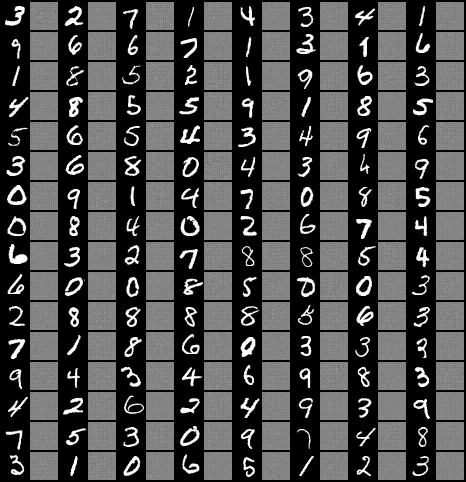 3 2 7 1 4 3 4 1
9 6 6 7 1 3 1 6
1 8 5 2 1 9 6 3
4 8 5 5 9 1 8 5
5 6 5 4 3 4 9 6
3 6 8 0 4 3 4 9
0 9 1 4 7 0 8 5
0 8 4 0 2 6 7 4
6 3 2 7 8 8 5 4
6 0 0 8 5 0 0 3
2 8 8 8 8 5 6 3
7 1 8 6 0 3 3 3
9 4 3 4 6 9 8 3
4 2 6 2 4 9 3 9
7 5 3 0 9 7 4 8
3 1 0 6 5 1 2 3